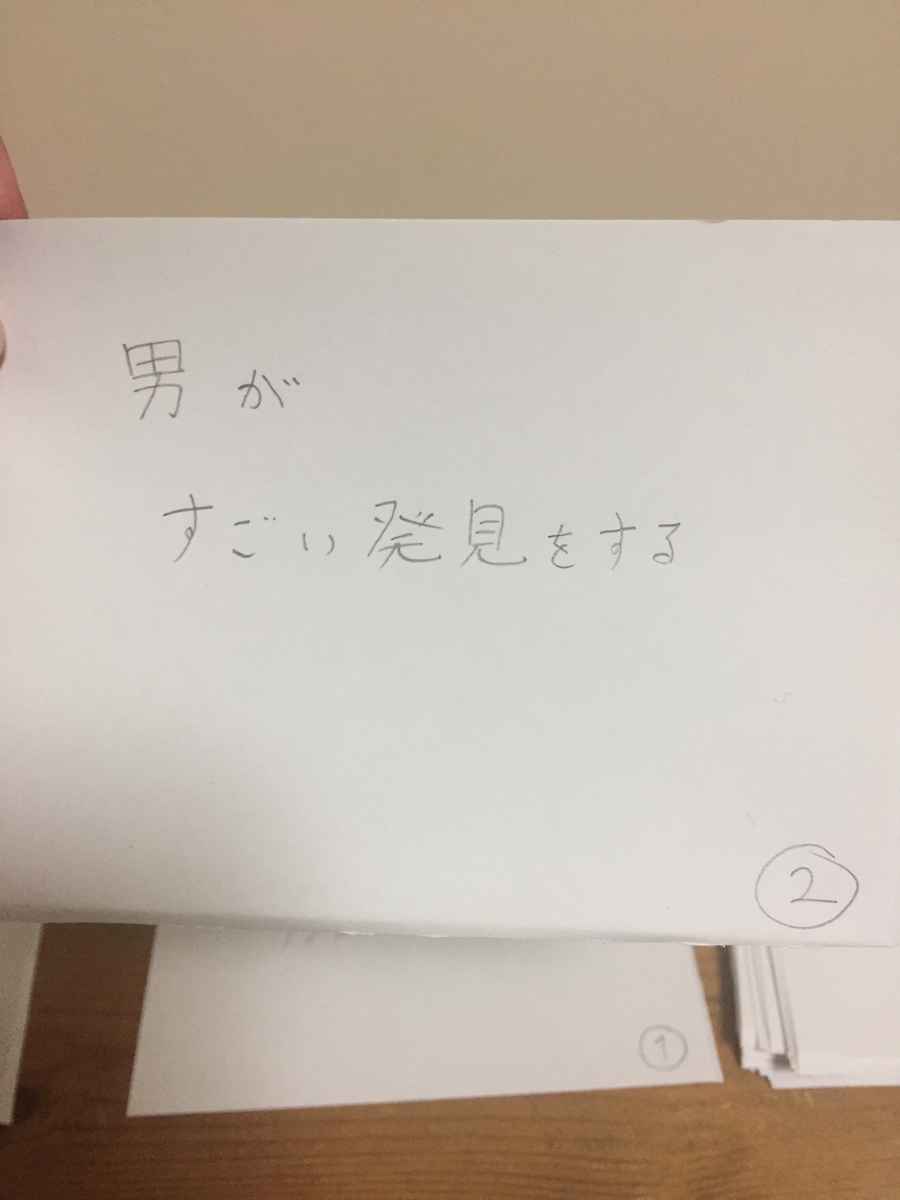 男が
すごい発見をする
②
①